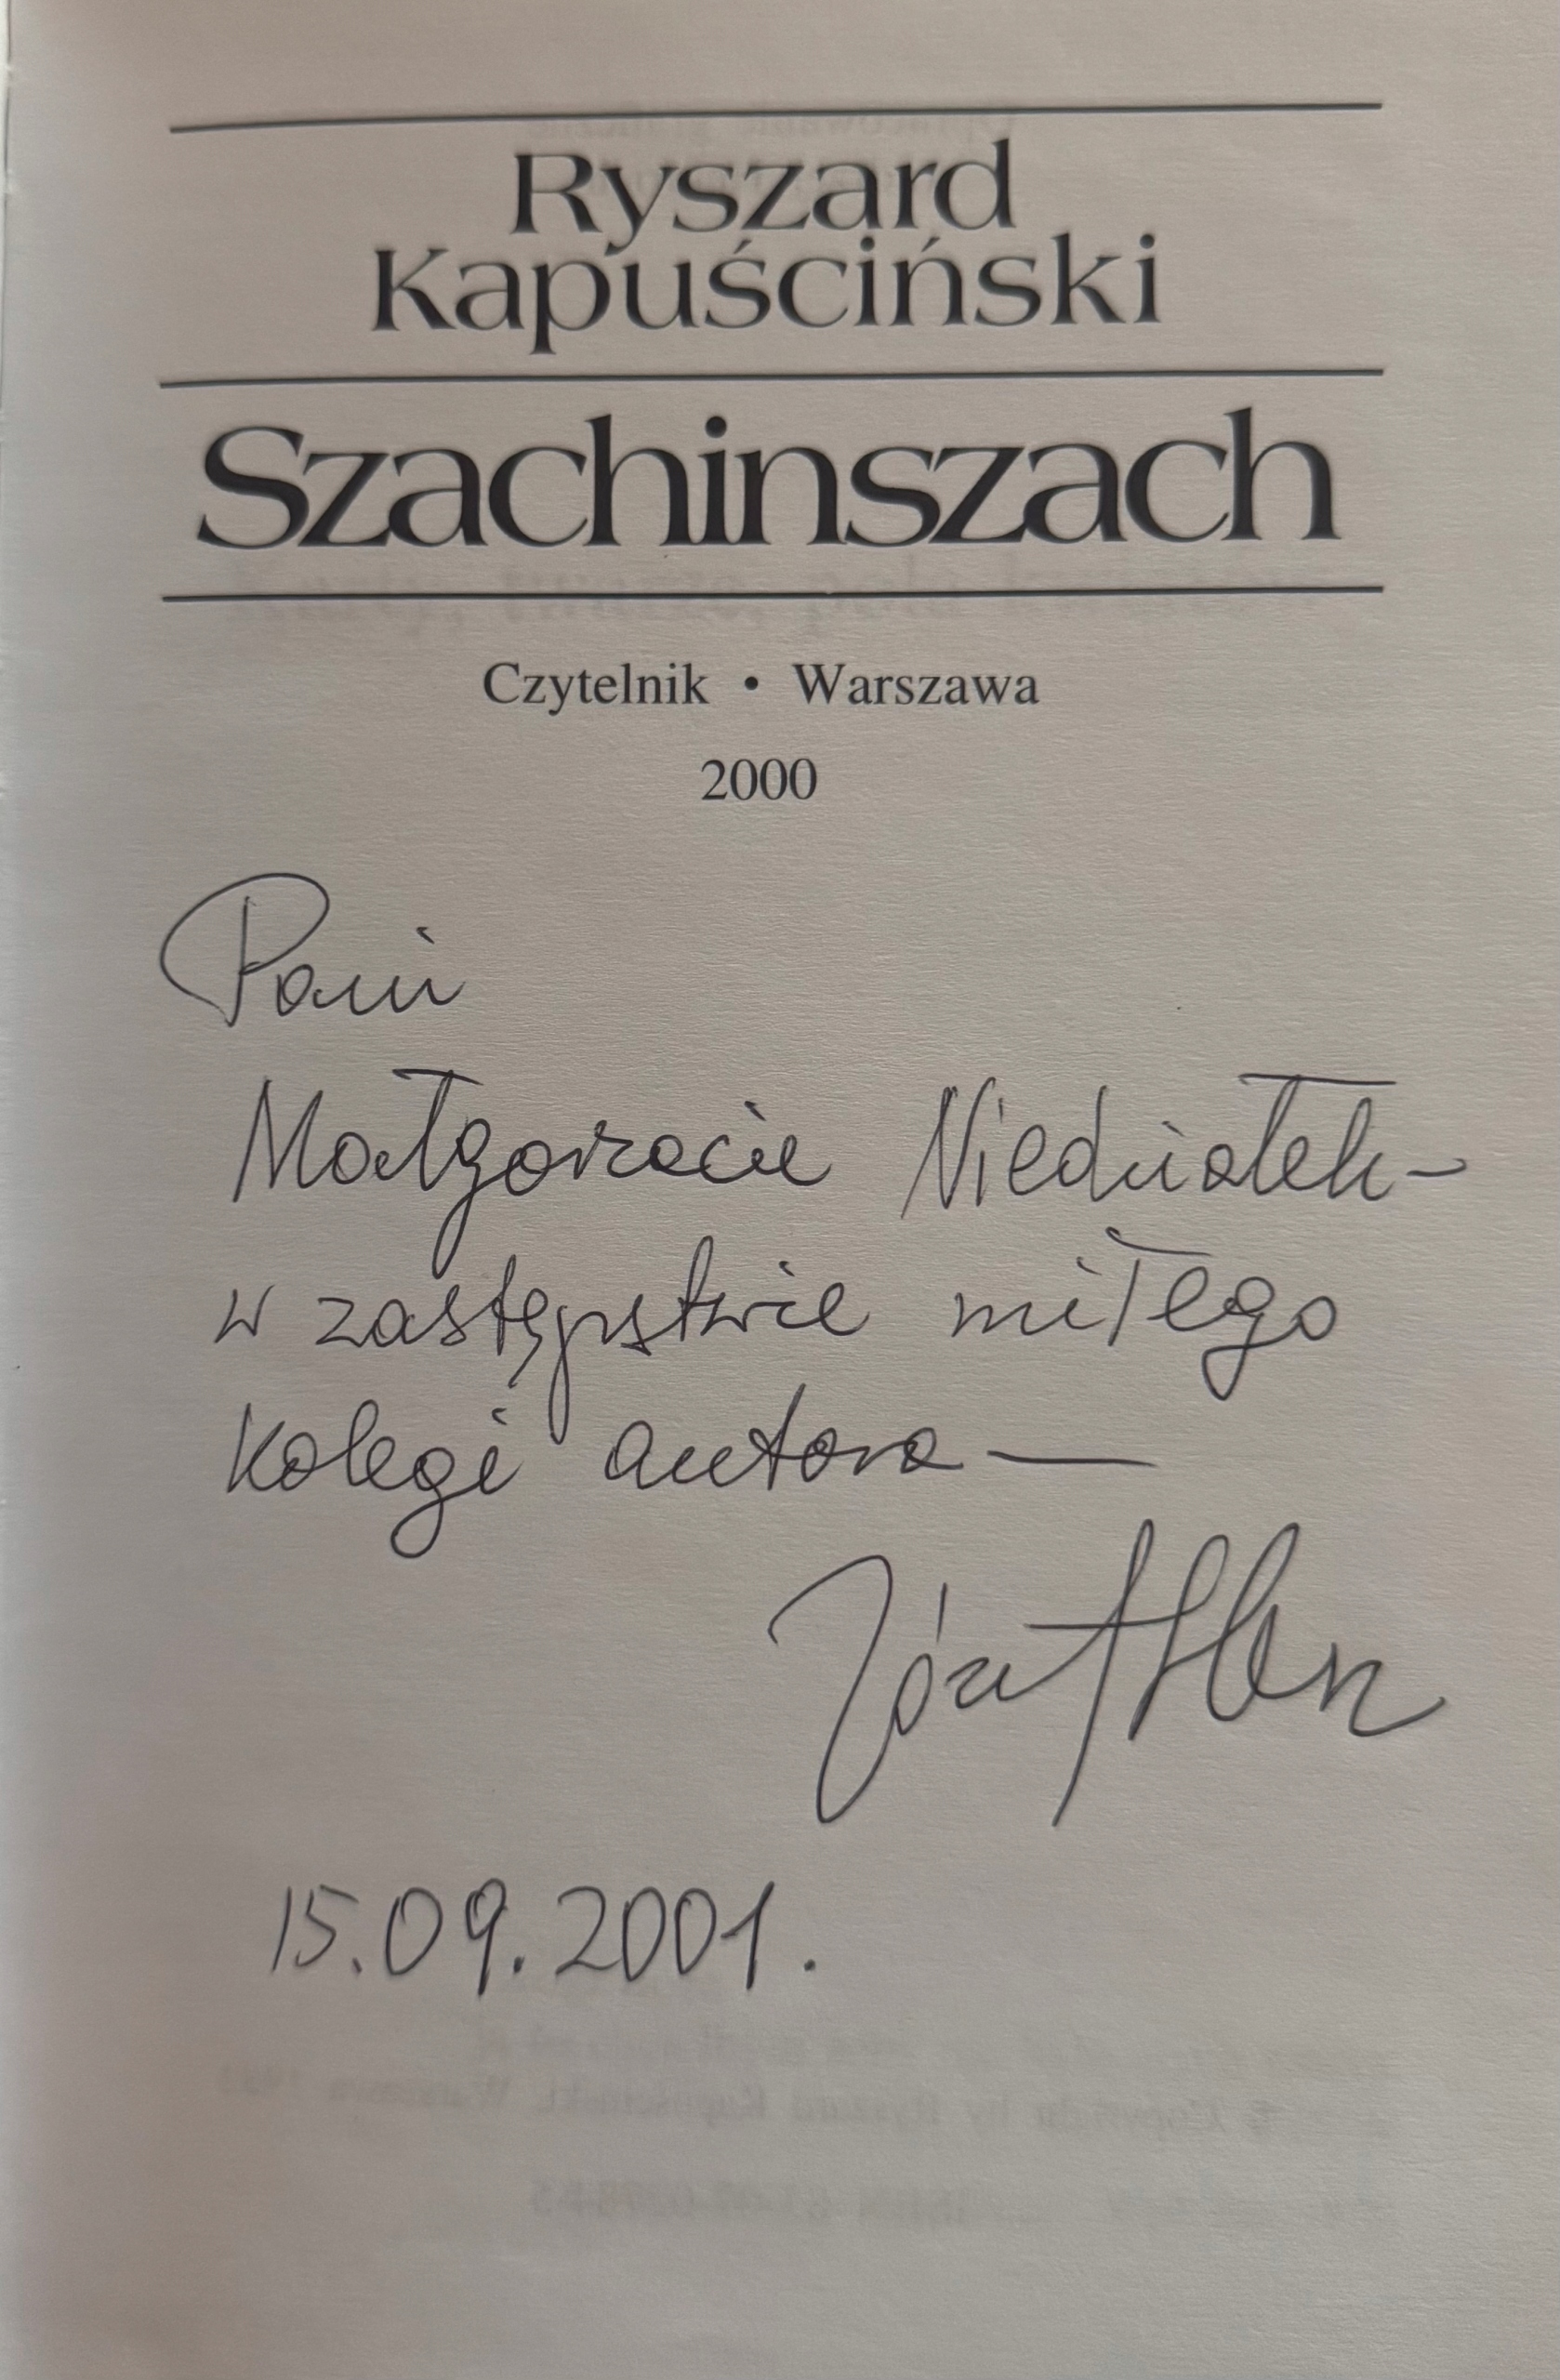 Ryszard
Kapuściński
Szachinszach
Czytelnik • Warszawa
2000
Pani
Małgorzacie Niedziałek–
w zastępstwie miłego
Kolegi autora —
Józef Hen
15.09.2001.